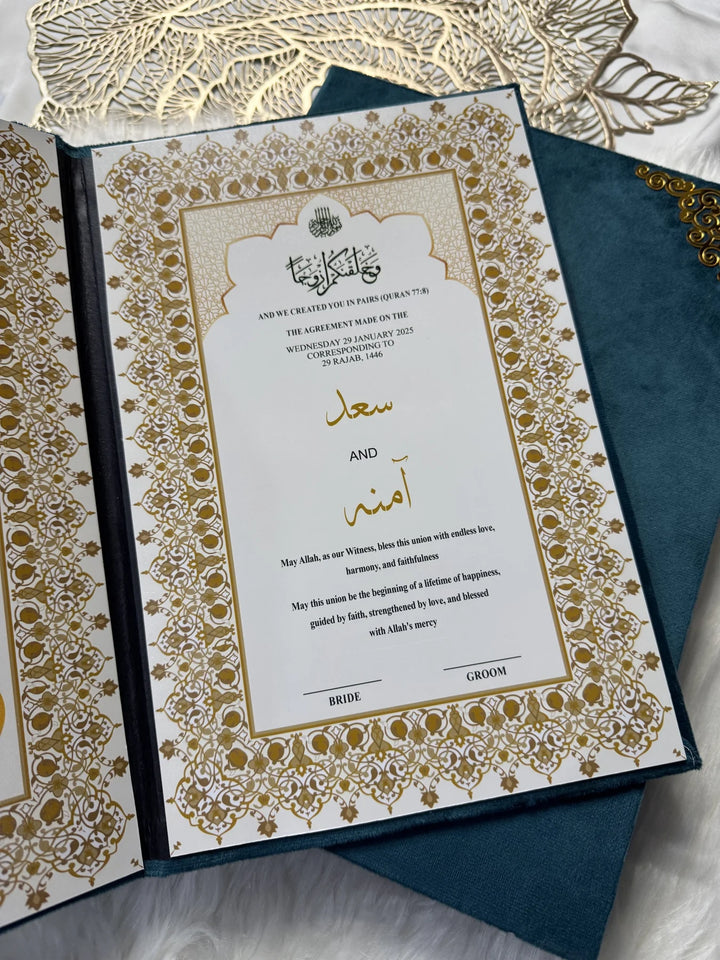 وَخَلَقْنَاكُمْ أَزْوَاجًا
AND WE CREATED YOU IN PAIRS (QURAN 77:8)
THE AGREEMENT MADE ON THE
WEDNESDAY 29 JANUARY 2025
CORRESPONDING TO
29 RAJAB, 1446
سعد
AND
آمنه
May Allah, as our Witness, bless this union with endless love,
harmony, and faithfulness
May this union be the beginning of a lifetime of happiness,
guided by faith, strengthened by love, and blessed
with Allah's mercy
BRIDE
GROOM